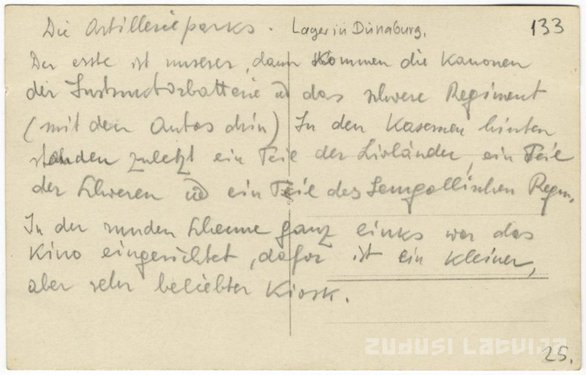 Die Artillerieparks. Lager in Dünaburg. 133
Der erste ist unserer, dann kommen die Kanonen
der Instruktorbatterie u das schwere Regiment
(mit den Autos drin) In den Kasernen hinten
standen zuletzt ein Teil der Livländer, ein Teil
der Schweren u ein Teil des Semgallischen Regm.
In der runden Scheune ganz links war das
Kino eingerichtet, dafor ist ein kleiner,
aber sehr beliebter Kiosk.
ZUDUSI LATVIJA
25.